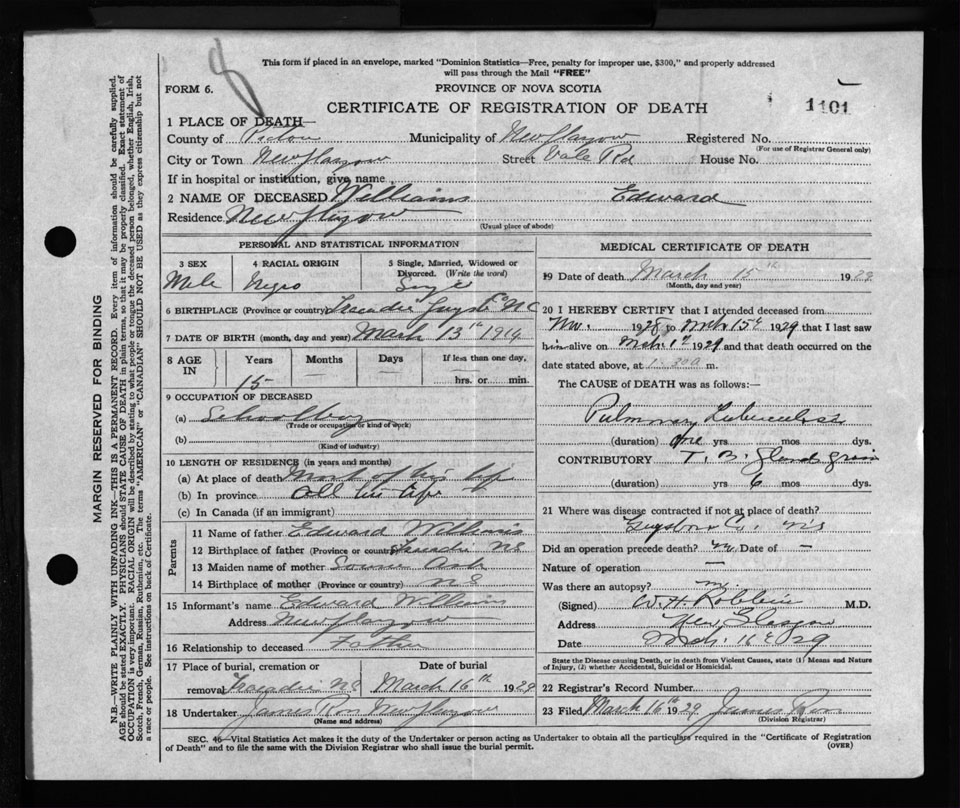 8
This form if placed in an envelope, marked "Dominion Statistics—Free, penalty for improper use, $300," and properly addressed
will pass through the Mail "FREE"
FORM 6.
PROVINCE OF NOVA SCOTIA
CERTIFICATE OF REGISTRATION OF DEATH
1101
1 PLACE OF DEATH—
County of Pictou Municipality of New Glasgow Registered No.
(For use of Registrar General only)
City or Town New Glasgow Street Vale Rd House No.
If in hospital or institution, give name
2 NAME OF DECEASED Williams Edward
Residence New Glasgow
(Usual place of abode)
PERSONAL AND STATISTICAL INFORMATION
3 SEX
Male
4 RACIAL ORIGIN
Negro
5 Single, Married, Widowed or
Divorced. (Write the word)
Single
6 BIRTHPLACE (Province or country) Tracadie Guys
7 DATE OF BIRTH (month, day and year) March 13th 1914
8 AGE IN
Years Months Days If less than one day,
15 — — hrs. or min.
9 OCCUPATION OF DECEASED
(a) Schoolboy
(Trade or occupation or kind of work)
(b)
(Kind of industry)
10 LENGTH OF RESIDENCE (in years and months)
(a) At place of death Most of his life
(b) In province All his life
(c) In Canada (if an immigrant)
Parents
11 Name of father Edward Williams
12 Birthplace of father (Province or country) Tracadie NS
13 Maiden name of mother Ash
14 Birthplace of mother (Province or country) NS
15 Informant's name Edward Williams
Address New Glasgow
16 Relationship to deceased Father
17 Place of burial, cremation or Date of burial
removal Tracadie NS March 16th 1929
18 Undertaker James New Glasgow
(Name and address)
MEDICAL CERTIFICATE OF DEATH
19 Date of death March 15th 1929
(Month, day and year)
20 I HEREBY CERTIFY that I attended deceased from
Nov. 1928 to Mch 15th 1929 that I last saw
him alive on Mch. 1st 1929 and that death occurred on the
date stated above, at 1.30 a m.
The CAUSE of DEATH was as follows:—
Pulmonary Tuberculosis
(duration) One yrs mos dys.
CONTRIBUTORY T. B. gland groin
(duration) 6 yrs mos dys.
21 Where was disease contracted if not at place of death?
Guysboro Co. NS
Did an operation precede death? no Date of —
Nature of operation —
Was there an autopsy? no
(Signed) W. H. Robbins M.D.
Address New Glasgow
Date Mch. 16 29
State the Disease causing Death, or in death from Violent Causes, state (1) Means and Nature
of Injury, (2) whether Accidental, Suicidal or Homicidal.
22 Registrar's Record Number
23 Filed March 16th 1929 James
(Division Registrar)
SEC. 46—Vital Statistics Act makes it the duty of the Undertaker or person acting as Undertaker to obtain all the particulars required in the "Certificate of Registration
of Death" and to file the same with the Division Registrar who shall issue the burial permit.
(OVER)
MARGIN RESERVED FOR BINDING
N.B.—WRITE PLAINLY WITH UNFADING INK—THIS IS A PERMANENT RECORD. Every item of information should be carefully supplied.
AGE should be stated EXACTLY. PHYSICIANS should STATE CAUSE OF DEATH in plain terms, so that it may be properly classified. Exact statement of
OCCUPATION is very important. RACIAL ORIGIN will be described by stating to what people or tongue the deceased person belonged, whether English, Irish,
Scotch, French, German, Russian, Ruthenian, etc. The terms "AMERICAN" or "CANADIAN" SHOULD NOT BE USED as they express citizenship but not
a race or people. See instructions on back of Certificate.